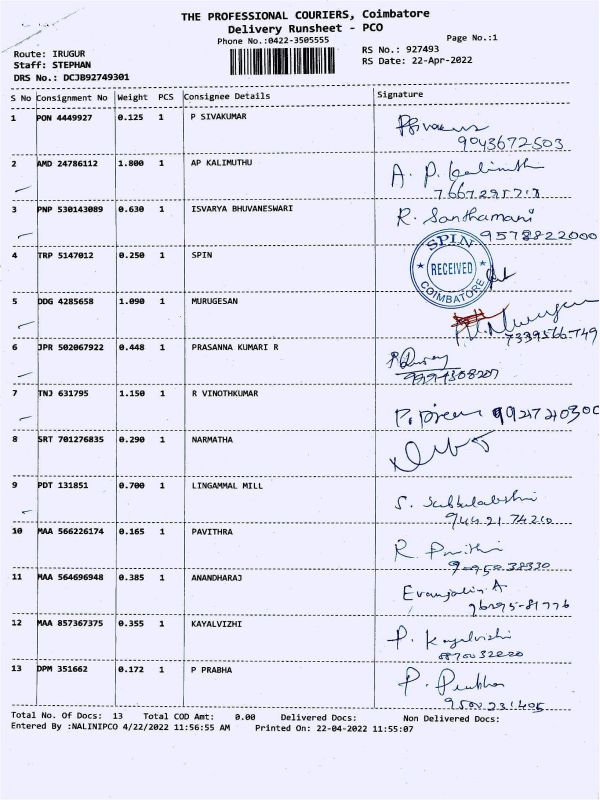 THE PROFESSIONAL COURIERS, Coimbatore
Delivery Runsheet - PCO
Phone No.:0422-3505555
Page No.:1
Route: IRUGUR
RS No.: 927493
Staff: STEPHAN
RS Date: 22-Apr-2022
DRS No.: DCJB92749301
S No Consignment No Weight PCS Consignee Details Signature
1 PON 4449927 0.125 1 P SIVAKUMAR
9043672503
2 AMD 24786112 1.800 1 AP KALIMUTHU A. P. Kalimuth
3 PNP 530143089 0.630 1 ISVARYA BHUVANESWARI R. Santhamani
9578822000
4 TRP 5147012 0.250 1 SPIN
SPIN
RECEIVED
COIMBATORE
5 DDG 4285658 1.090 1 MURUGESAN
7339566749
6 JPR 502067922 0.448 1 PRASANNA KUMARI R
7 TNJ 631795 1.150 1 R VINOTHKUMAR
8 SRT 701276835 0.290 1 NARMATHA
9 PDT 131851 0.700 1 LINGAMMAL MILL S. Subbulakshmi
94421 74210
10 MAA 566226174 0.165 1 PAVITHRA
90950 38330
11 MAA 564696948 0.385 1 ANANDHARAJ Evanjalin A
96295-81776
12 MAA 857367375 0.355 1 KAYALVIZHI P. Kayalvizhi
13 DPM 351662 0.172 1 P PRABHA P. Prabha
9500 231405
Total No. Of Docs: 13 Total COD Amt: 0.00 Delivered Docs: Non Delivered Docs:
Entered By :NALINIPCO 4/22/2022 11:56:55 AM Printed On: 22-04-2022 11:55:07